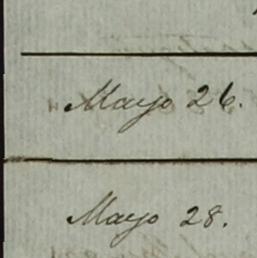 Mayo 26.
Mayo 28.